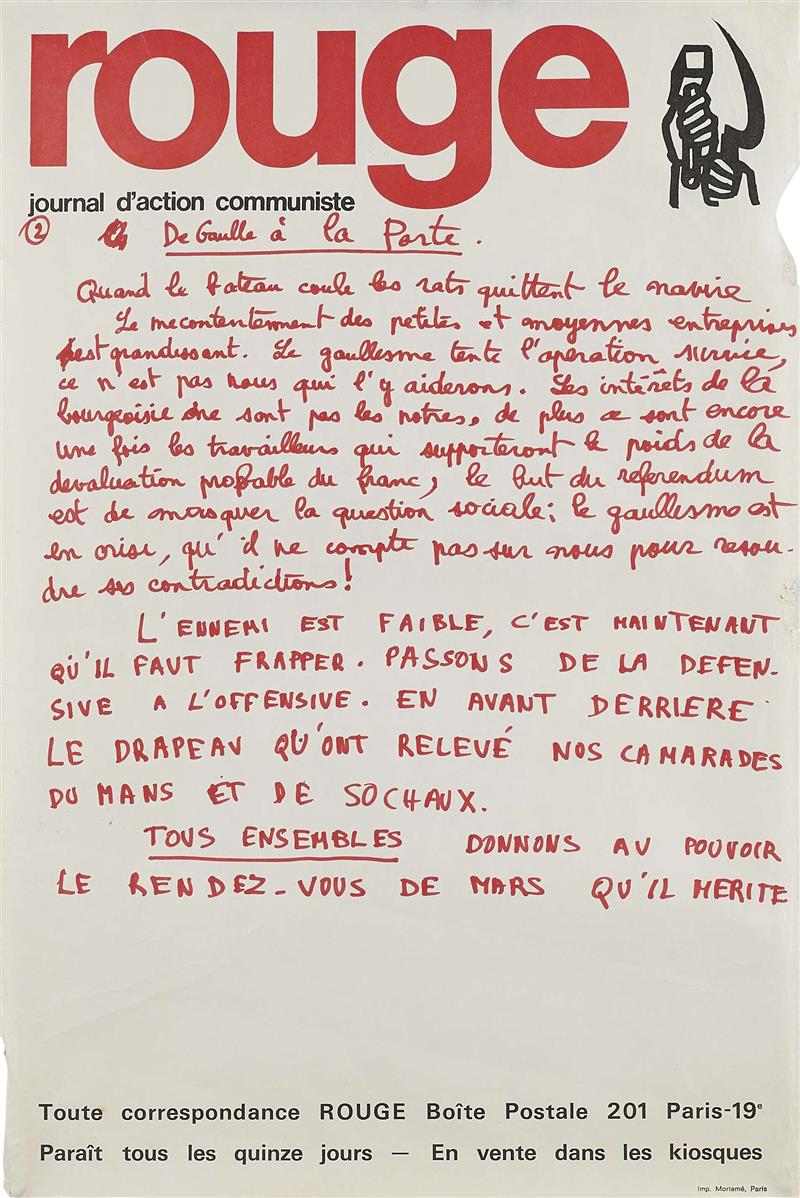 rouge
journal d'action communiste
2 De Gaulle à la Porte.
Quand le bateau coule les rats quittent le navire
Le mecontentement des petites et moyennes entreprises
est grandissant. Le gaullesme tente l'operation survie,
ce n'est pas nous qui l'y aiderons. Les intérêts de la
bourgeoisie ne sont pas les notres, de plus ce sont encore
une fois les travailleurs qui supporteront le poids de la
devaluation probable du franc, le but du referendum
est de masquer la question sociale; le gaullesme est
en crise, qu'il ne compte pas sur nous pour resou-
dre ses contradictions!
L'ENNEMI EST FAIBLE, C'EST MAINTENANT
QU'IL FAUT FRAPPER. PASSONS DE LA DEFEN-
SIVE A L'OFFENSIVE. EN AVANT DERRIERE
LE DRAPEAU QU'ONT RELEVÉ NOS CAMARADES
DU MANS ET DE SOCHAUX.
TOUS ENSEMBLES DONNONS AU POUVOIR
LE RENDEZ-VOUS DE MARS QU'IL MERITE
Toute correspondance ROUGE Boîte Postale 201 Paris-19e
Paraît tous les quinze jours — En vente dans les kiosques
Imp. Moriamé, Paris